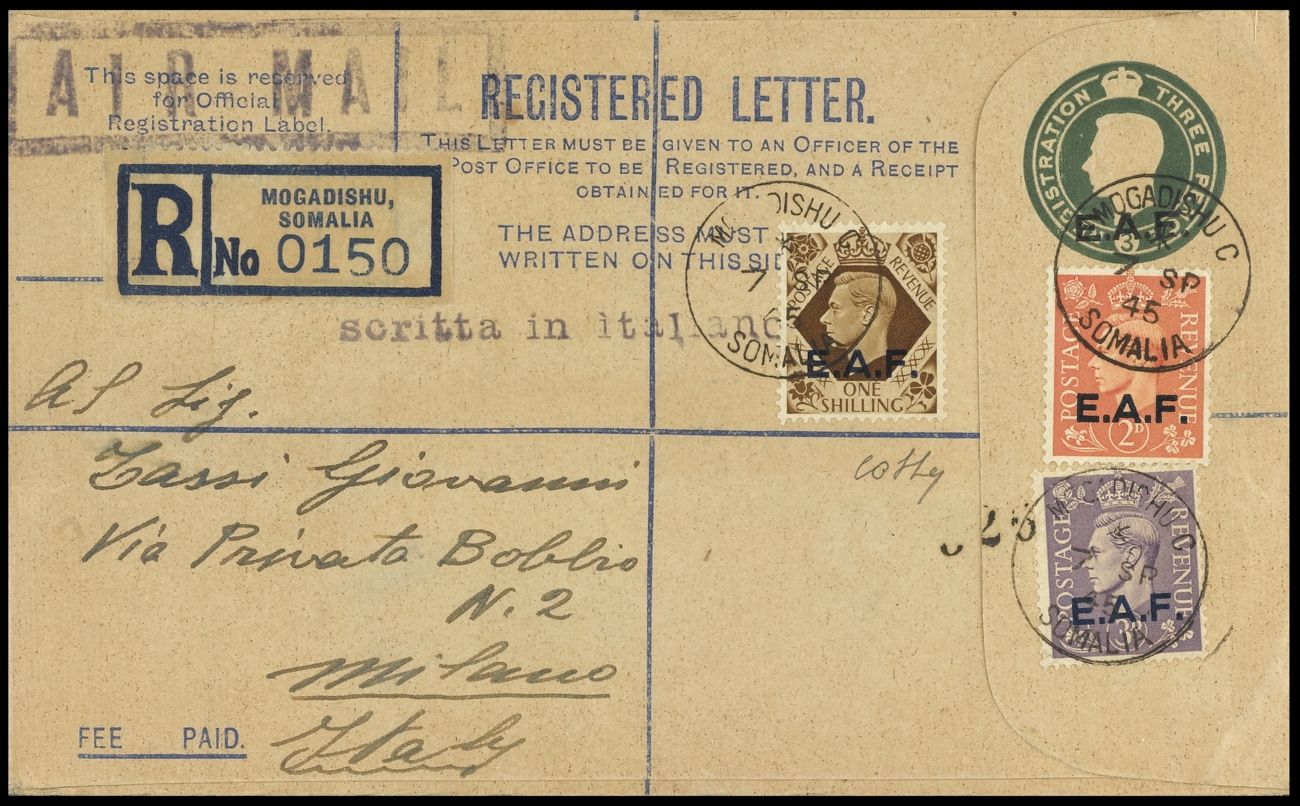 AIR MAIL
This space is reserved
for Official
Registration Label.
REGISTERED LETTER.
THIS LETTER MUST BE GIVEN TO AN OFFICER OF THE
POST OFFICE TO BE REGISTERED, AND A RECEIPT
OBTAINED FOR IT.
THE ADDRESS MUST
WRITTEN ON THIS SIDE
R No 0150
MOGADISHU,
SOMALIA
scritta in italiano
REGISTRATION THREE PENCE
E.A.F.
MOGADISHU C
7 SP
45
SOMALIA
MOGADISHU C
7 SP
45
SOMALIA
POSTAGE REVENUE
E.A.F.
ONE
SHILLING
POSTAGE REVENUE
E.A.F.
2D
MOGADISHU C
7 SP
45
SOMALIA
POSTAGE REVENUE
E.A.F.
3D
Al Sig.
Tassi Giovanni
Via Privata Bobbio
N. 2
Milano
Italy
FEE PAID.